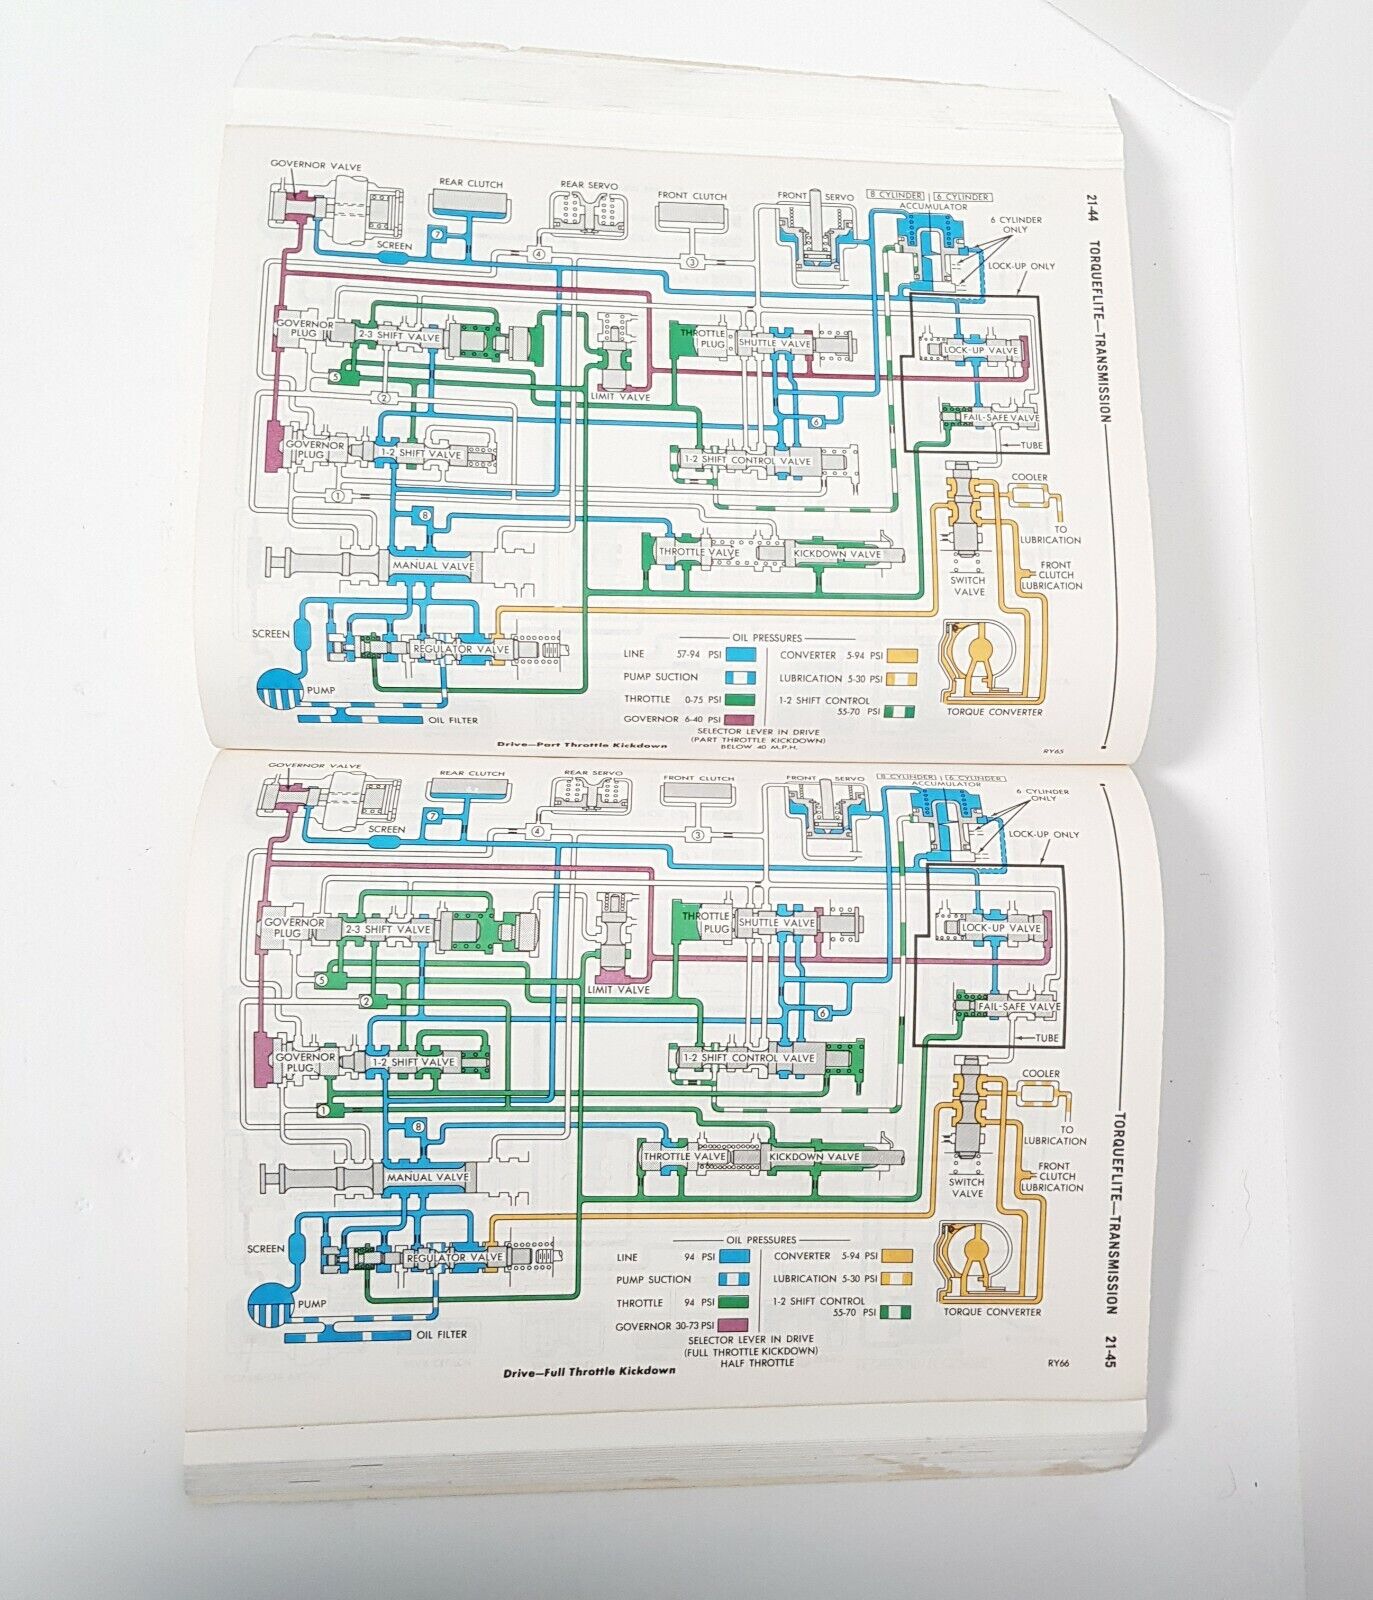 GOVERNOR VALVE
REAR CLUTCH
REAR SERVO
FRONT CLUTCH
FRONT SERVO
8 CYLINDER 6 CYLINDER
ACCUMULATOR
6 CYLINDER
ONLY
LOCK-UP ONLY
SCREEN
7
4
3
GOVERNOR
PLUG
2-3 SHIFT VALVE
THROTTLE
PLUG
SHUTTLE VALVE
LOCK-UP VALVE
5
2
LIMIT VALVE
6
FAIL-SAFE VALVE
TUBE
GOVERNOR
PLUG
1-2 SHIFT VALVE
1-2 SHIFT CONTROL VALVE
COOLER
1
8
TO
LUBRICATION
THROTTLE VALVE
KICKDOWN VALVE
MANUAL VALVE
SWITCH
VALVE
FRONT
CLUTCH
LUBRICATION
SCREEN
REGULATOR VALVE
PUMP
OIL FILTER
TORQUE CONVERTER
OIL PRESSURES
LINE 57-94 PSI
PUMP SUCTION
THROTTLE 0-75 PSI
GOVERNOR 6-40 PSI
CONVERTER 5-94 PSI
LUBRICATION 5-30 PSI
1-2 SHIFT CONTROL
55-70 PSI
SELECTOR LEVER IN DRIVE
(PART THROTTLE KICKDOWN)
BELOW 40 M.P.H.
Drive—Part Throttle Kickdown
RY65
21-44 TORQUEFLITE—TRANSMISSION
GOVERNOR VALVE
REAR CLUTCH
REAR SERVO
FRONT CLUTCH
FRONT SERVO
8 CYLINDER 6 CYLINDER
ACCUMULATOR
6 CYLINDER
ONLY
LOCK-UP ONLY
SCREEN
7
4
3
GOVERNOR
PLUG
2-3 SHIFT VALVE
THROTTLE
PLUG
SHUTTLE VALVE
LOCK-UP VALVE
5
2
LIMIT VALVE
6
FAIL-SAFE VALVE
TUBE
GOVERNOR
PLUG
1-2 SHIFT VALVE
1-2 SHIFT CONTROL VALVE
COOLER
1
8
TO
LUBRICATION
THROTTLE VALVE
KICKDOWN VALVE
MANUAL VALVE
SWITCH
VALVE
FRONT
CLUTCH
LUBRICATION
SCREEN
REGULATOR VALVE
PUMP
OIL FILTER
TORQUE CONVERTER
OIL PRESSURES
LINE 94 PSI
PUMP SUCTION
THROTTLE 94 PSI
GOVERNOR 30-73 PSI
CONVERTER 5-94 PSI
LUBRICATION 5-30 PSI
1-2 SHIFT CONTROL
55-70 PSI
SELECTOR LEVER IN DRIVE
(FULL THROTTLE KICKDOWN)
HALF THROTTLE
Drive—Full Throttle Kickdown
RY66
TORQUEFLITE—TRANSMISSION 21-45